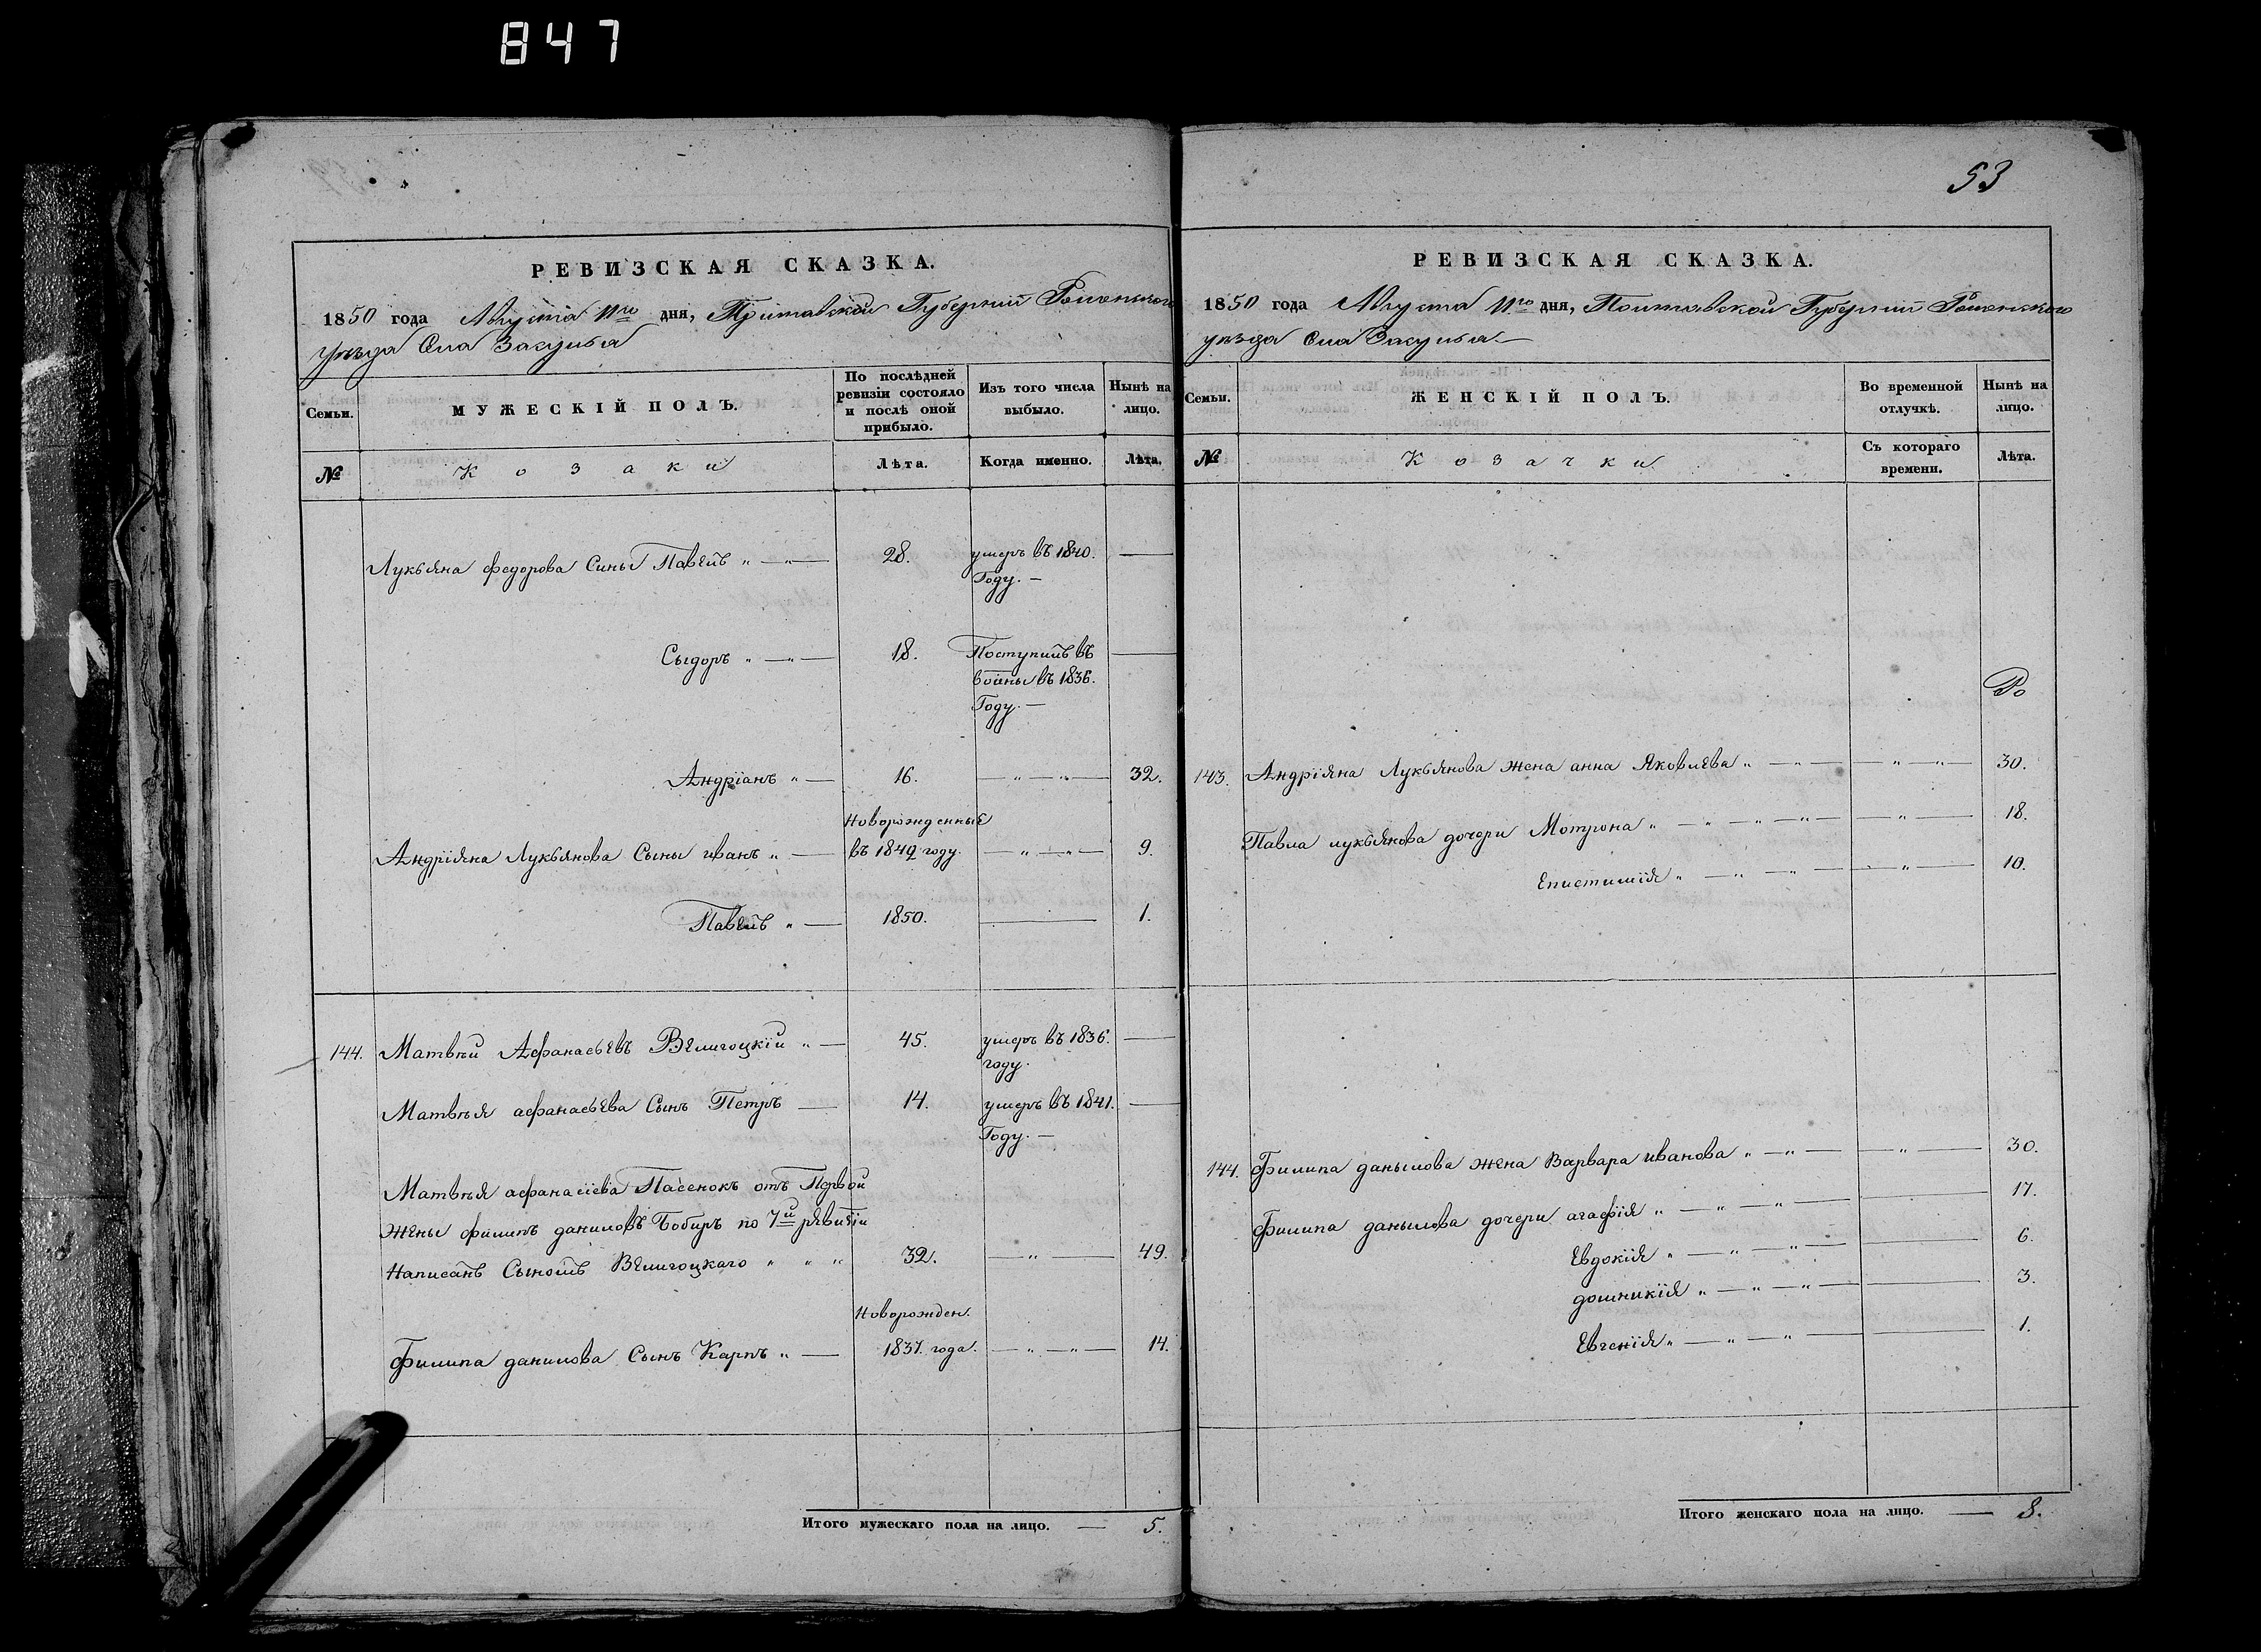 847
53
РЕВИЗСКАЯ СКАЗКА.
1850 года Августа 11го дня, Полтавской Губерніи Роменского
уѣзда Села Закупова
Семьи.
МУЖЕСКІЙ ПОЛЪ.
По послѣдней ревизіи состояло и послѣ оной прибыло.
Изъ того числа выбыло.
Нынѣ на лицо.
№
Козаки
Лѣта.
Когда именно.
Лѣта.
Лукьяна федорова Сины Павелъ " — " — 28. умеръ въ 1840. —
Году. —
Сыдоръ " — " — 18. Поступилъ въ —
воины въ 1836.
Году. —
Андріанъ " — 16. — " — " — 32.
Новорожденные
Андріяна Лукьянова Сыны иванъ " — въ 1842 году. — " — " — 9.
Павелъ " — 1850. — 1.
144. Матвѣй Афанасьевъ Велигоцкій " — 45. умеръ въ 1836. —
году.
Матвѣя афанасьева Сынъ Петръ — 14. умеръ въ 1841. —
Году. —
Матвѣя афанасіева Пасенокъ отъ Первой
жены филипъ даниловъ Бобиръ по 7й ревизіи
Написанъ Сыномъ Велигоцкаго " " " 32. — " — 49.
Новорожден.
Филипа данилова Сынъ Карпъ " — 1837. года. — " — " — 14.
Итого мужескаго пола на лицо. — 5.
РЕВИЗСКАЯ СКАЗКА.
1850 года Августа 11го дня, Полтавской Губерніи Роменского
уѣзда Села Закупова —
Семьи.
ЖЕНСКІЙ ПОЛЪ.
Во временной отлучкѣ.
Нынѣ на лицо.
№
Козачки
Съ котораго времени.
Лѣта.
143. Андріяна Лукьянова жена анна Яковлева " — " — " — " — 30.
Павла лукьянова дочери Мотрона " — " — " — " — " — 18.
Епистимія " — " — " — " — 10.
144. Филипа данылова жена Варвара иванова " — " — " — 30.
Филипа данылова дочери агафія " — " — " — 17.
Евдокія " — " — " — 6.
домникія " — " — " — 3.
Евгенія " — " — " — 1.
Итого женскаго пола на лицо. — 8.